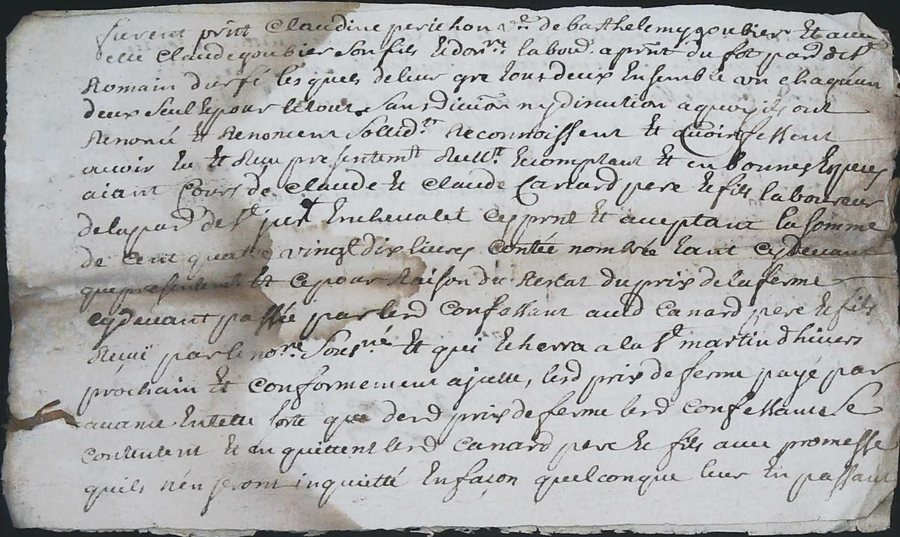 furent pñt Claudine perichon vᵉ de barthelemy goubier Et avec
elle Claude goubier Son fils Led. laboʳ a pñt du
Romain durfé lesquels de leur gré tous deux Ensemble un chaqu'un
deux Seul Epour Le tout Sans division ny dicution a quoy ils ont
Renoncé Et Renoncent Solidᵗ Reconnoissent Et Confessent
avoir Eu Et Reçu presentemᵗ Ecomptant Et en bonnes Especes
aiant Cours de Claude Et Claude Canard pere Et fils laboureur
de la par. de Sᵗ just En chevalet Cy pñt Et aceptant la Somme
de Cent quatre vingt dix livres Contée nombrée tant Cydevant
que presentemᵗ Et Ce pour Raison du Restat du prix de la ferme
Cydevant passée par lesd Confessant aud Canard pere Et fils
Reçu par le noʳᵉ Soussⁿé Et qui Echerra a la Sᵗ martin d'hivers
prochain Et Conformement a jcelle, lesd prix de ferme payé par
avance En telle Sorte que dud prix de ferme lesd Confessant Se
Contentent Et en quittent lesd Canard pere Et fils avec promesse
quils n'en seront inquietté En façon quelconque leur En passant